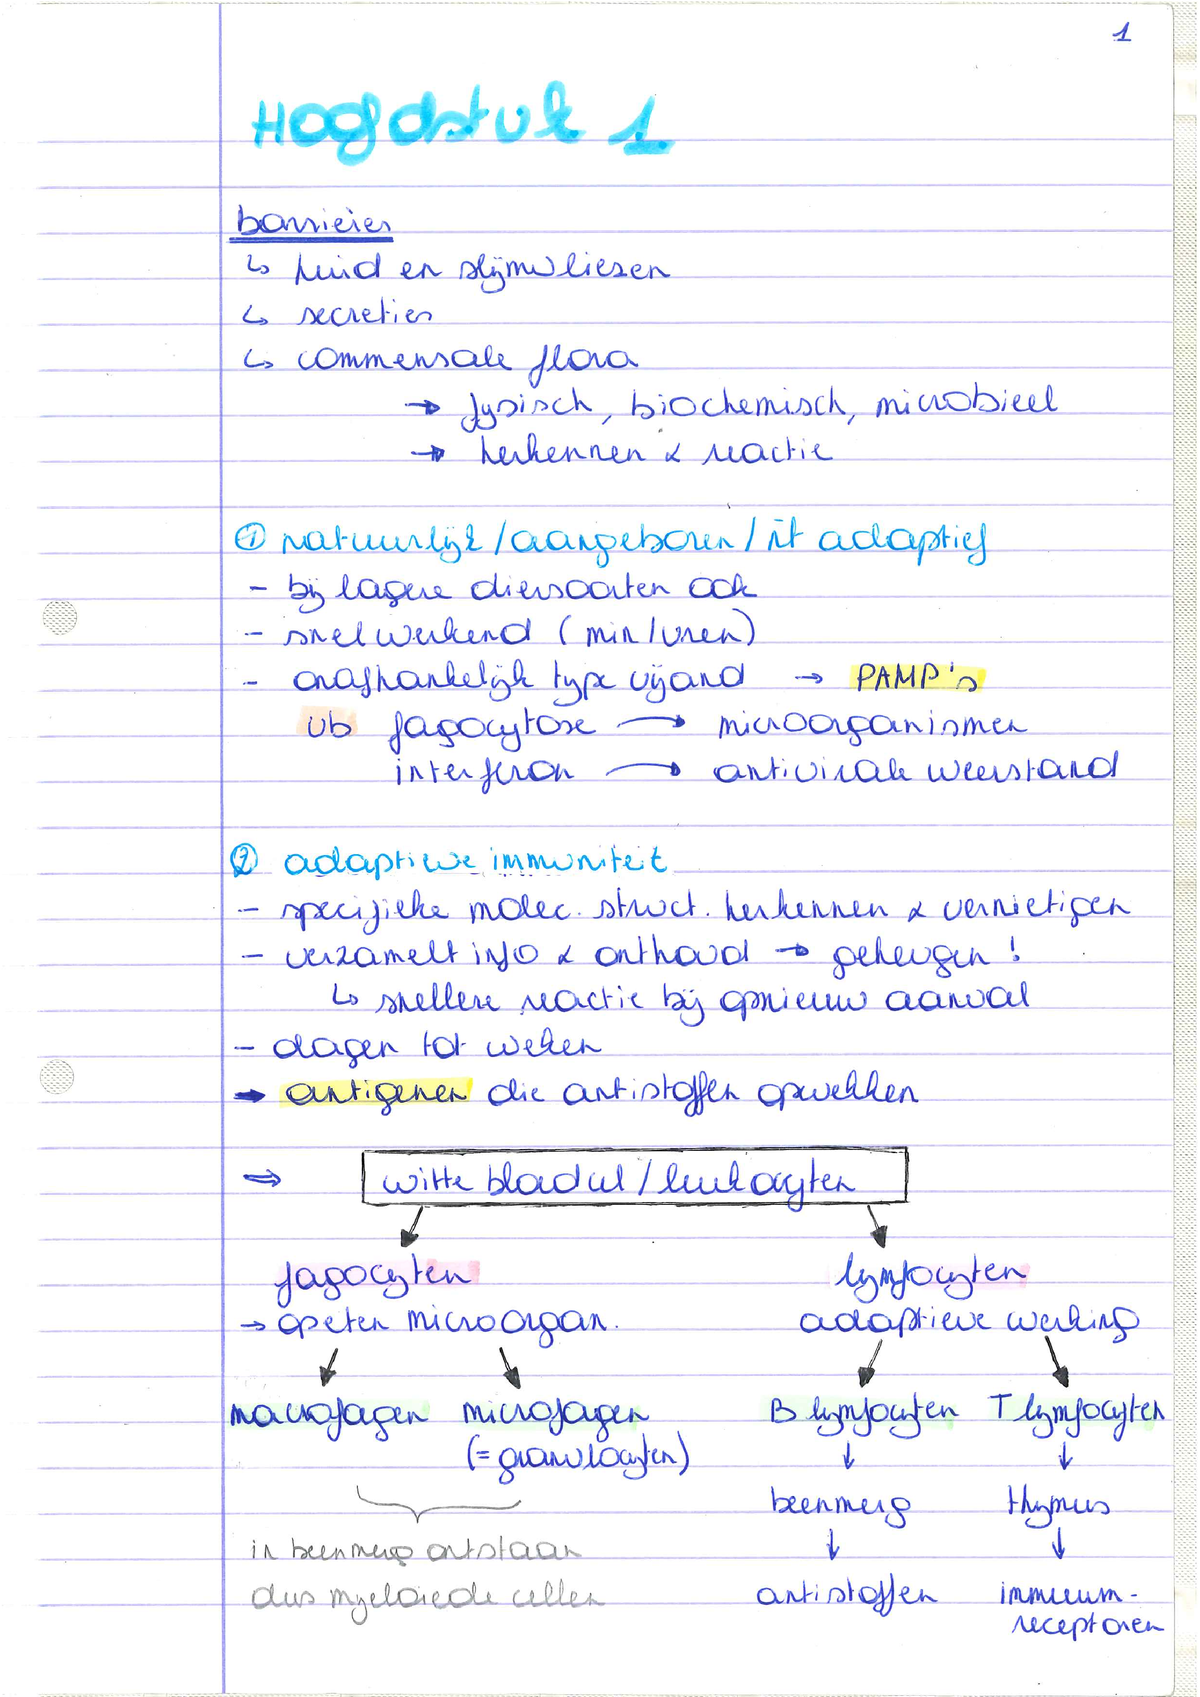 1
Hoofdstuk 1
barrières
↳ huid en slijmvliezen
↳ secreties
↳ commensale flora
→ fysisch, biochemisch, microbieel
→ herkennen & reactie
① natuurlijk/aangeboren/nt adaptief
- bij lagere diersoorten ook
- snel werkend (min/uren)
- onafhankelijk type vijand → PAMP's
vb fagocytose → microorganismen
interferon → antivirale weerstand
② adaptieve immuniteit
- specifieke molec. struct. herkennen & vernietigen
- verzamelt info & onthoud → geheugen!
↳ snellere reactie bij opnieuw aanval
- dagen tot weken
→ antigenen die antistoffen opwekken
⇒ witte bloedcel/leukocyten
fagocyten lymfocyten
→ opeten microorgan. adaptieve werking
macrofagen microfagen B lymfocyten T lymfocyten
(= granulocyten) ↓ ↓
beenmerg thymus
in beenmerg ontstaan ↓ ↓
dus myeloiede cellen antistoffen immuum-
receptoren